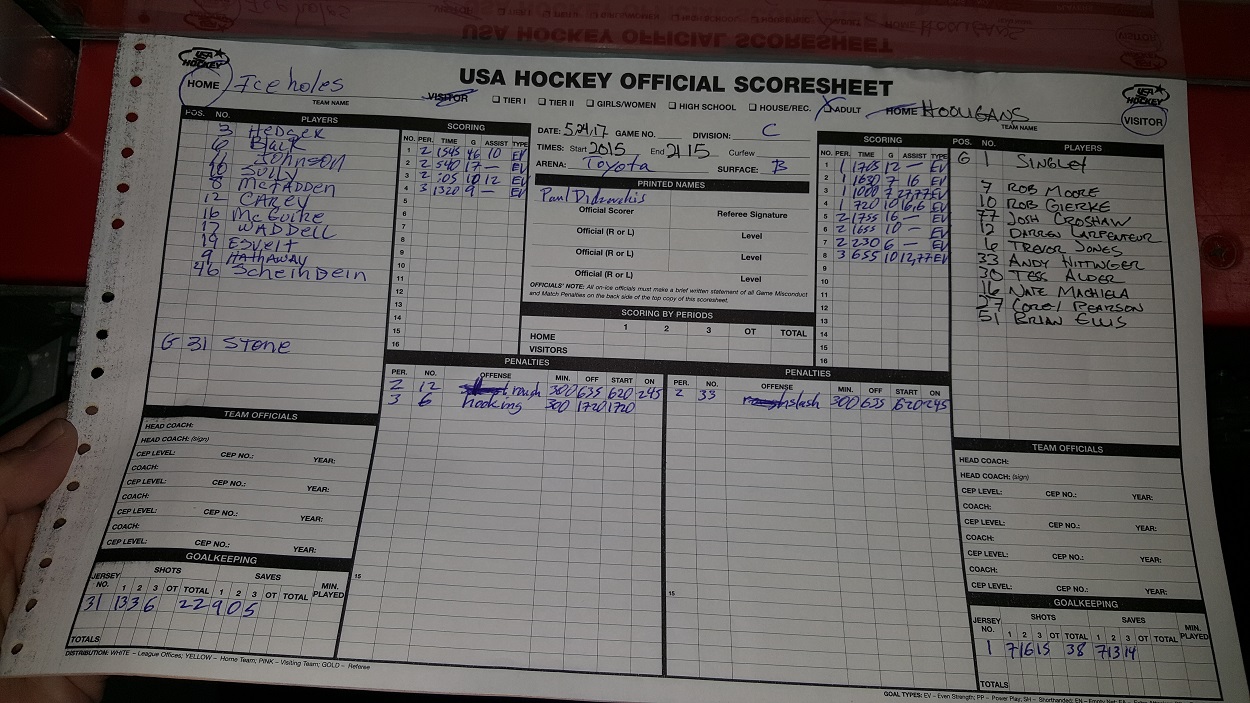 USA HOCKEY OFFICIAL SCORESHEET
USA HOCKEY
HOME Iceholes
TEAM NAME
VISITOR ☐ TIER I ☐ TIER II ☐ GIRLS/WOMEN ☐ HIGH SCHOOL ☐ HOUSE/REC. ☐ ADULT
HOME HOOLIGANS
TEAM NAME
USA HOCKEY
VISITOR
POS. NO. PLAYERS
3 Hedger
6 Black
Johnson
10 Sully
8 McFadden
12 CAREY
16 McGuire
17 WADDELL
19 Esvelt
9 HATHAWAY
46 Scheindein
G 31 Stone
SCORING
NO. PER. TIME G ASSIST TYPE
1 2 1545 46 10 EV
2 2 540 17 — EV
3 2 505 10 12 EV
4 3 1320 9 — EV
5
6
7
8
9
10
11
12
13
14
15
16
DATE: 5.24.17 GAME NO. DIVISION: C
TIMES: Start 2015 End 2115 Curfew
ARENA: Toyota SURFACE: B
PRINTED NAMES
Paul
Official Scorer Referee Signature
Official (R or L) Level
Official (R or L) Level
Official (R or L) Level
OFFICIALS' NOTE: All on-ice officials must make a brief written statement of all Game Misconduct
and Match Penalties on the back side of the top copy of this scoresheet.
SCORING BY PERIODS
1 2 3 OT TOTAL
HOME
VISITORS
SCORING
NO. PER. TIME G ASSIST TYPE
1 1 1765 12 — EV
2 1 1630 7 16 EV
3 1 1000 7 27,77 EV
4 1 720 10 16,6 EV
5 2 1755 16 — EV
6 2 1655 10 — EV
7 2 2230 6 — EV
8 3 655 10 12,77 EV
9
10
11
12
13
14
15
16
POS. NO. PLAYERS
G 1 SINGLEY
7 ROB MOORE
10 ROB GIERKE
77 JOSH CROSHAW
12 DARREN CARPENTEUR
6 TREVOR JONES
33 ANDY HITTINGER
30 TESS ALDER
16 NATE MACHIELA
27 COREY PEARSON
51 BRIAN ELLIS
PENALTIES
PER. NO. OFFENSE MIN. OFF START ON
2 12 rough 300 635 620 245
3 6 hooking 300 1720 1720
15
PENALTIES
PER. NO. OFFENSE MIN. OFF START ON
2 33 slash 300 635 620 245
15
TEAM OFFICIALS
HEAD COACH:
HEAD COACH: (sign)
CEP LEVEL: CEP NO.: YEAR:
COACH:
CEP LEVEL: CEP NO.: YEAR:
COACH:
CEP LEVEL: CEP NO.: YEAR:
COACH:
CEP LEVEL: CEP NO.: YEAR:
GOALKEEPING
JERSEY NO. SHOTS SAVES MIN. PLAYED
1 2 3 OT TOTAL 1 2 3 OT TOTAL
31 13 3 6 22 9 0 5
TOTALS
TEAM OFFICIALS
HEAD COACH:
HEAD COACH: (sign)
CEP LEVEL: CEP NO.: YEAR:
COACH:
CEP LEVEL: CEP NO.: YEAR:
COACH:
CEP LEVEL: CEP NO.: YEAR:
COACH:
CEP LEVEL: CEP NO.: YEAR:
GOALKEEPING
JERSEY NO. SHOTS SAVES MIN. PLAYED
1 2 3 OT TOTAL 1 2 3 OT TOTAL
1 7 16 15 38 7 13 14
TOTALS
DISTRIBUTION: WHITE – League Offices; YELLOW – Home Team; PINK – Visiting Team; GOLD – Referee
GOAL TYPES: EV – Even Strength; PP – Power Play; SH – Shorthanded; EN – Empty Net;